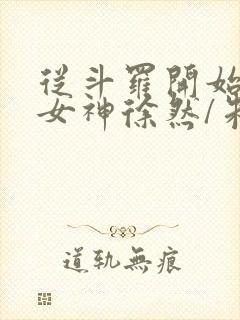 從斗羅開始
女神徐然/朱
道軌無痕